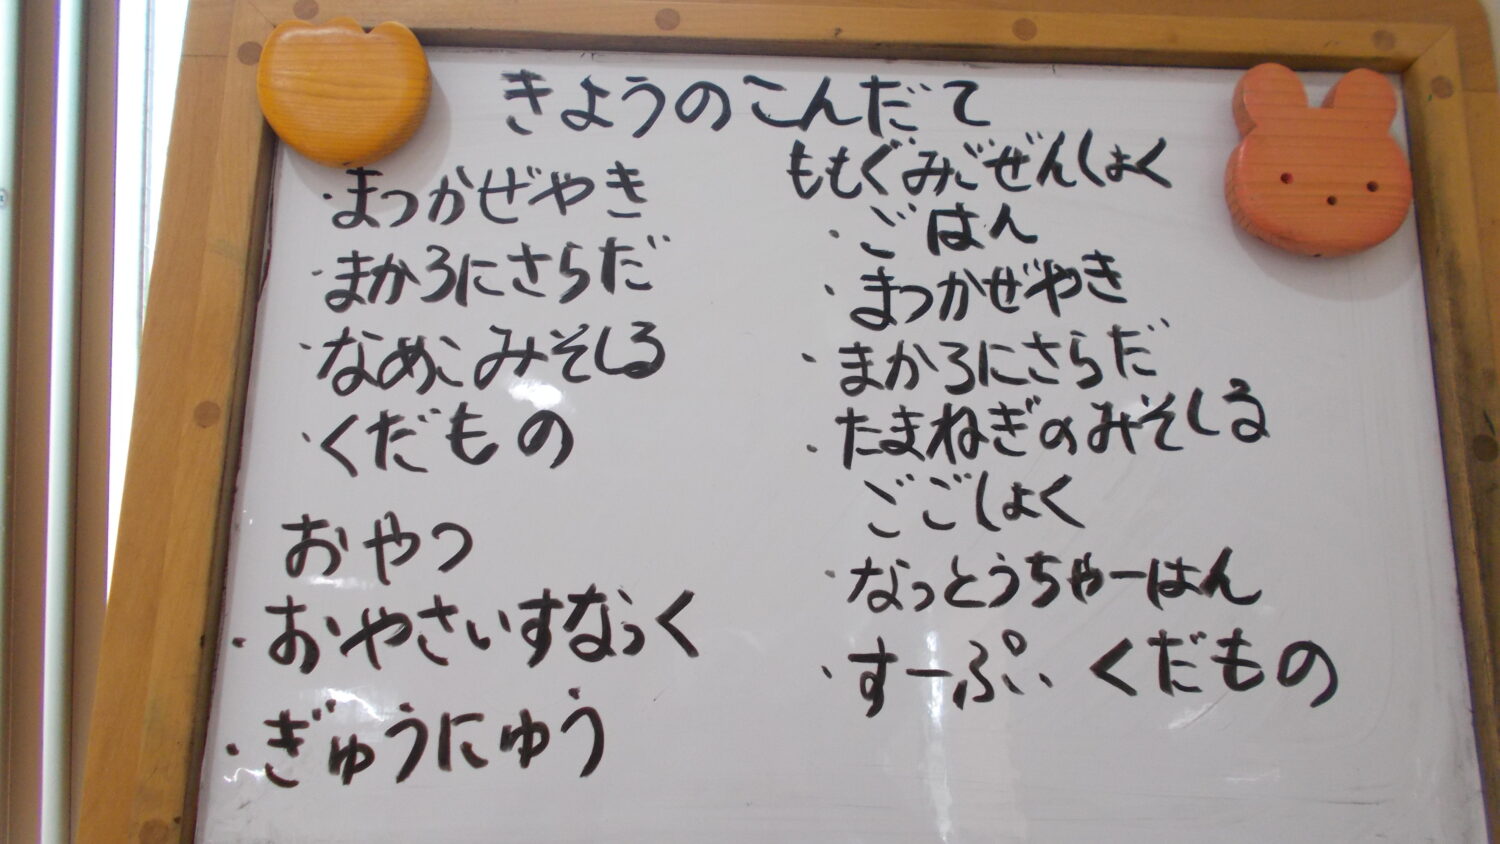 きょうのこんだて
・まつかぜやき
・まかろにさらだ
・なめこみそしる
・くだもの
おやつ
・おやさいすなっく
・ぎゅうにゅう
ももぐみごぜんしょく
・ごはん
・まつかぜやき
・まかろにさらだ
・たまねぎのみそしる
ごごしょく
・なっとうちゃーはん
・すーぷ、くだもの